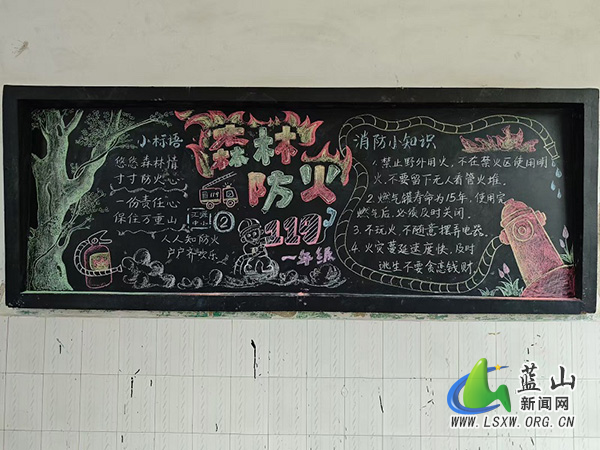 小标语
悠悠森林情
寸寸防火心
一份责任心
保住万重山
人人知防火
户户齐欢乐
森林
防火
②
119
一年级
消防小知识
1.禁止野外用火,不在禁火区使用明
火,不要留下无人看管火堆。
2.燃气罐寿命为15年,使用完
燃气后,必须及时关闭。
3.不玩火,不随意摆弄电器。
4.火灾蔓延速度快,及时
逃生不要贪恋钱财。
蓝山
新闻网
WWW.LSXW.ORG.CN